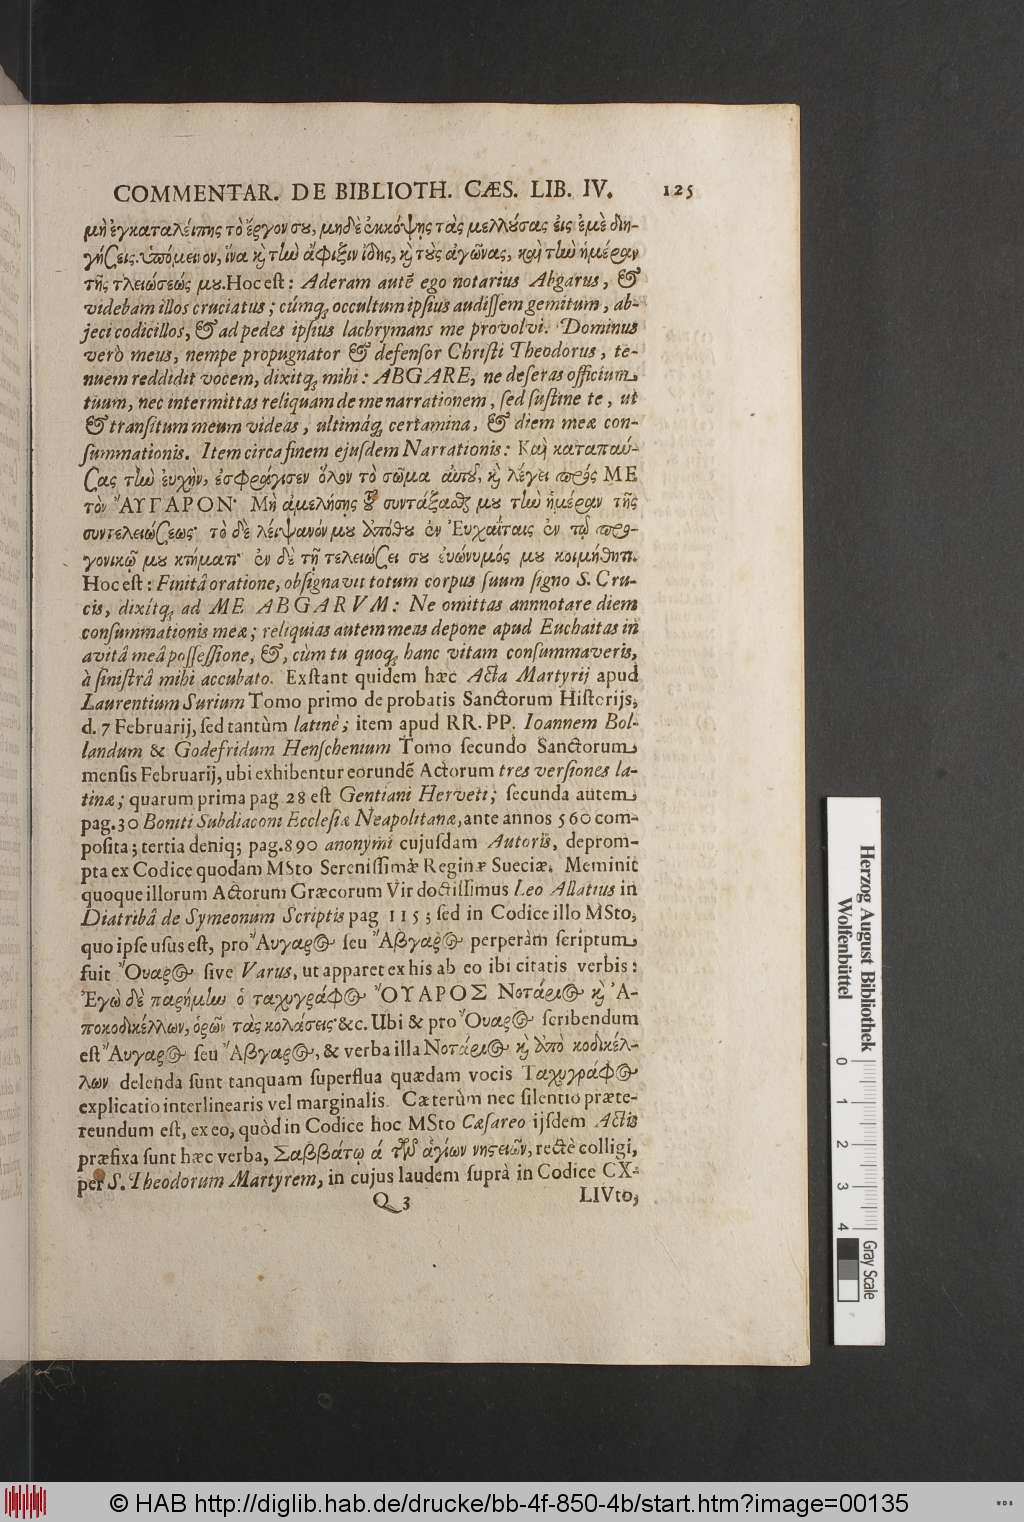 COMMENTAR. DE BIBLIOTH. CÆS. LIB. IV. 125
μὴ ἐγκαταλείπης τὸ ἔργον σου, μηδὲ ἐκκόψης τὰς μελλούσας εἰς ἐμὲ διη-
γήσεις. ὑπόμεινον, ἵνα καὶ τὴν ἄφιξιν ἴδης, καὶ τοὺς ἀγῶνας, καὶ τὴν ἡμέραν
τῆς τλειώσεώς μου. Hoc eſt: Aderam autē ego notarius Abgarus, &
videbam illos cruciatus; cúmq; occultum ipſius audiſſem gemitum, ab-
jeci codicillos, & ad pedes ipſius lachrymans me provolvi. Dominus
verò meus, nempe propugnator & defenſor Chriſti Theodorus, te-
nuem reddidit vocem, dixitq; mihi: ABGARE, ne deſeras officium
tuum, nec intermittas reliquam de me narrationem, ſed ſuſtine te, ut
& tranſitum meum videas, ultimáq; certamina, & diem meæ con-
ſummationis. Item circa finem ejuſdem Narrationis: Καὶ καταπαύ-
σας τὴν εὐχὴν, ἐσφράγισεν ὅλον τὸ σῶμα αὐτοῦ, καὶ λέγει πρός ΜΕ
τὸν ἌΥΓΑΡΟΝ· Μὴ ἀμελήσης τοῦ συντάξασθαι μου τὴν ἡμέραν τῆς
συντελειώσεως· τὸ δὲ λείψανόν μου ἀπόθου ἐν Ἐυχαΐταις ἐν τῷ προ-
γονικῷ μου κτήματι· ἐν δὲ τῇ τελειώσει σου ἐυώνυμός μου κοιμήθητι.
Hoc eſt: Finitâ oratione, obſignavit totum corpus ſuum ſigno S. Cru-
cis, dixítq; ad ME ABGARVM: Ne omittas annnotare diem
conſummationis meæ; reliquias autem meas depone apud Euchaitas in
avitâ meâ poſſeſſione, &, cùm tu quoq; hanc vitam conſummaveris,
à ſiniſtrâ mihi accubato. Exſtant quidem hæc Acta Martyrij apud
Laurentium Surium Tomo primo de probatis Sanctorum Hiſtorijs,
d. 7 Februarij, ſed tantùm latinè; item apud RR. PP. Ioannem Bol-
landum & Godefridum Henſchenium Tomo ſecundo Sanctorum
menſis Februarij, ubi exhibentur eorundē Actorum tres verſiones la-
tinæ; quarum prima pag 28 eſt Gentiani Herveti; ſecunda autem
pag. 30 Boniti Subdiaconi Eccleſiæ Neapolitanæ, ante annos 560 com-
poſita; tertia deniq; pag. 890 anonymi cujuſdam Autoris, deprom-
pta ex Codice quodam MSto Sereniſſimæ Reginæ Sueciæ. Meminit
quoque illorum Actorum Græcorum Vir doctiſſimus Leo Allatius in
Diatribâ de Symeonum Scriptis pag 115; ſed in Codice illo MSto,
quo ipſe uſus eſt, pro Ἄυγαρος ſeu Ἄβγαρος perperàm ſcriptum
fuit Ὄυαρος ſive Varus, ut apparet ex his ab eo ibi citatis verbis:
Ἐγὼ δὲ παρήμην ὁ ταχυγράφος ὌΥΑΡΟΣ Νοτάριος καὶ Ἀ-
ποκοδικέλλων, ὁρῶν τὰς κολάσεις· &c. Ubi & pro Ὄυαρος ſcribendum
eſt Ἄυγαρος ſeu Ἄβγαρος, & verba illa Νοτάριος καὶ ἀπὸ κοδικέλ-
λων delenda ſunt tanquam ſuperflua quædam vocis Ταχυγράφος
explicatio interlinearis vel marginalis. Cæterùm nec ſilentio præte-
reundum eſt, ex eo, quòd in Codice hoc MSto Cæſareo ijſdem Actis
præfixa ſunt hæc verba, Σαββάτῳ ά τῶν ἁγίων νηστειῶν, rectè colligi,
per S. Theodorum Martyrem, in cujus laudem ſuprà in Codice CX-
Q 3 LIVto,
Herzog August Bibliothek
Wolfenbüttel
0 1 2 3 4
Gray Scale
© HAB http://diglib.hab.de/drucke/bb-4f-850-4b/start.htm?image=00135